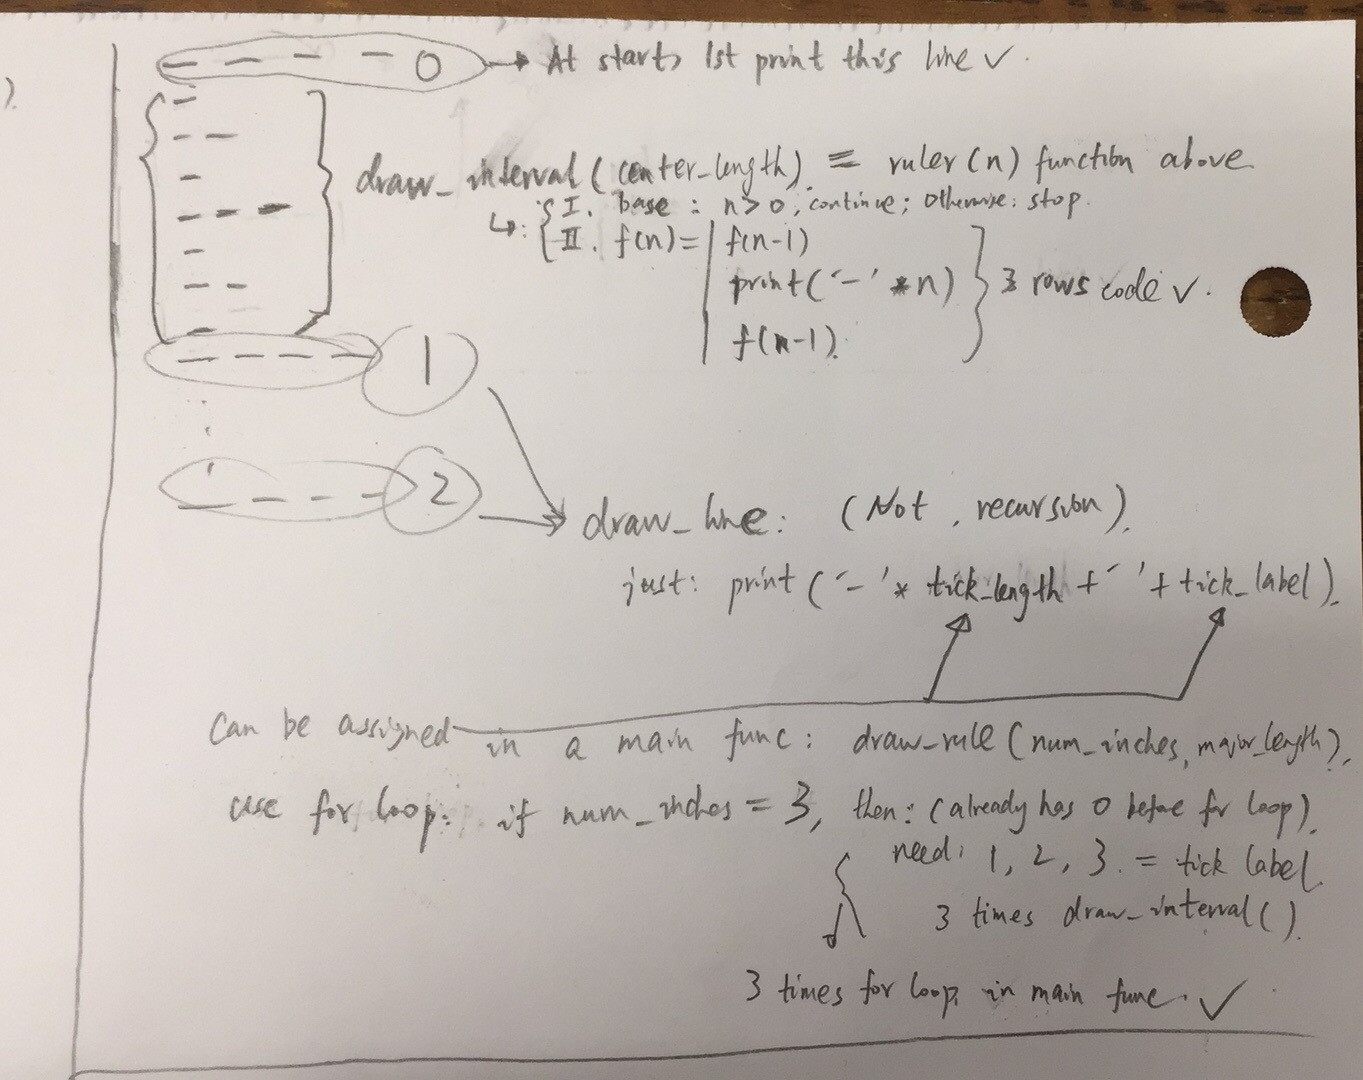 ).
- - - - 0 → At start, 1st print this line ✓.
-
- -
-
- - -
-
- -
-
draw_interval (center_length) ≡ ruler(n) function above
↳: { I. base : n>0, continue; otherwise: stop.
II. f(n) = f(n-1)
print('-' * n) } 3 rows code ✓.
f(n-1).
- - - - 1
- - - - 2
draw_line: (Not recursion).
just: print ('-' * tick_length + ' ' + tick_label).
Can be assigned in a main func: draw_rule (num_inches, major_length).
use for loop: if num_inches = 3, then: (already has 0 before for loop).
need: 1, 2, 3. = tick label.
3 times draw_interval().
3 times for loop in main func. ✓